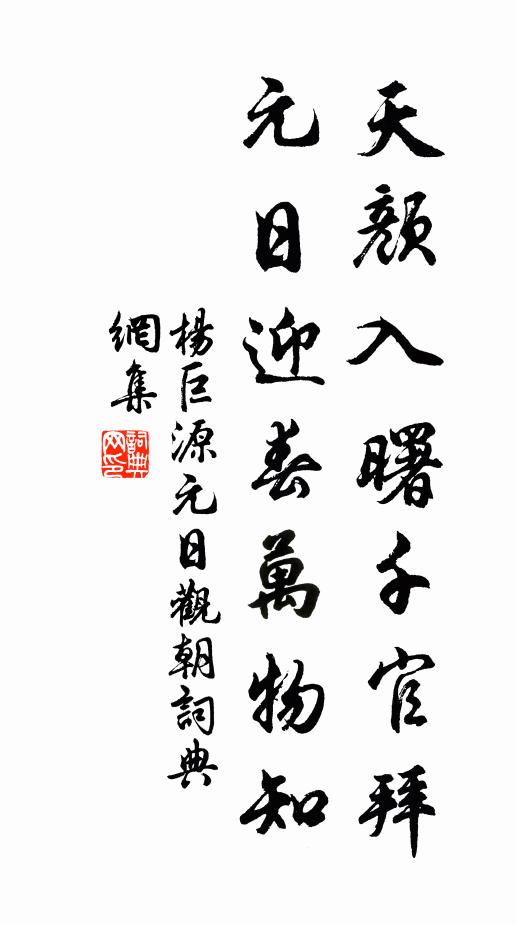 天顏入曙千官拜
元日迎春萬物知
楊巨源元日觀朝詞典
網集
詞典网印